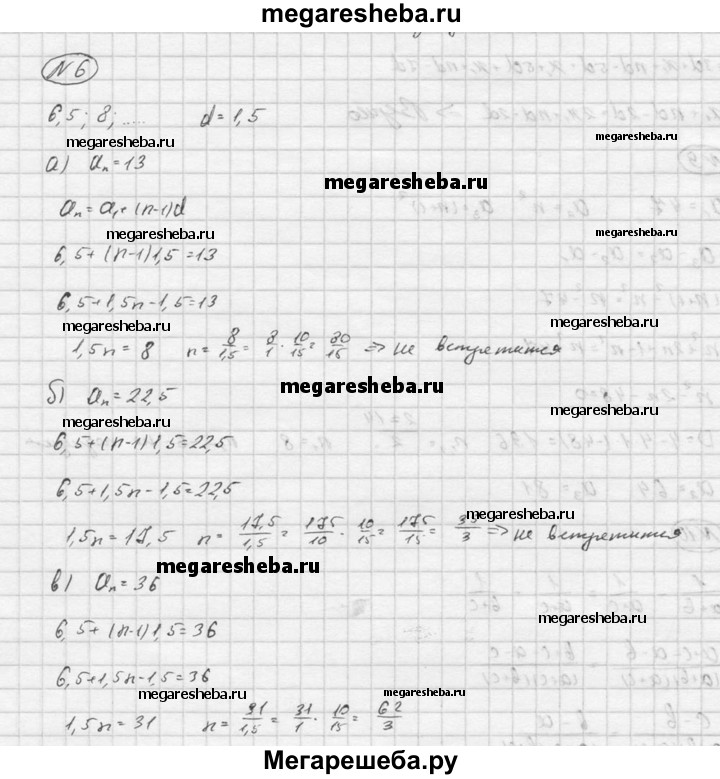 megaresheba.ru
N 6
6,5; 8; ..... d = 1,5
megaresheba.ru megaresheba.ru
а) aₙ = 13
megaresheba.ru
aₙ = a₁ + (n-1)d
megaresheba.ru megaresheba.ru
6,5 + (n-1)1,5 = 13
megaresheba.ru
6,5 + 1,5n - 1,5 = 13
megaresheba.ru megaresheba.ru
1,5n = 8 n = 8/1,5 = 8/1 · 10/15 = 80/15 => не встретится
megaresheba.ru
б) aₙ = 22,5
megaresheba.ru megaresheba.ru
6,5 + (n-1)1,5 = 22,5
6,5 + 1,5n - 1,5 = 22,5
megaresheba.ru
1,5n = 17,5 n = 17,5/1,5 = 175/10 · 10/15 = 175/15 = 35/3 => не встретится
megaresheba.ru
в) aₙ = 36
megaresheba.ru
6,5 + (n-1)1,5 = 36
6,5 + 1,5n - 1,5 = 36
megaresheba.ru megaresheba.ru
1,5n = 31 n = 31/1,5 = 31/1 · 10/15 = 62/3
megaresheba.ru
Мегарешеба.ру